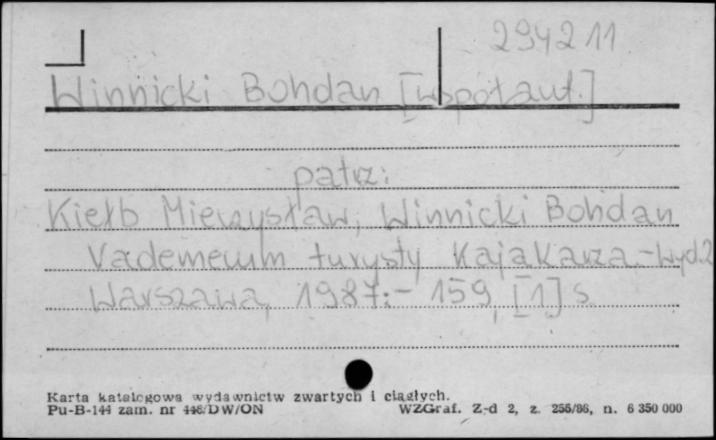 294211
Winnicki Bohdan [współaut.]
patrz:
Kiełb Mieczysław, Winnicki Bohdan
Vademecum turysty kajakarza. - Wyd. 2
Warszawa, 1987. - 159, [1] s.
Karta katalogowa wydawnictw zwartych i ciągłych.
Pu-B-144 zam. nr 446/DW/ON WZGraf. Z-d 2, z. 256/86, n. 6 350 000